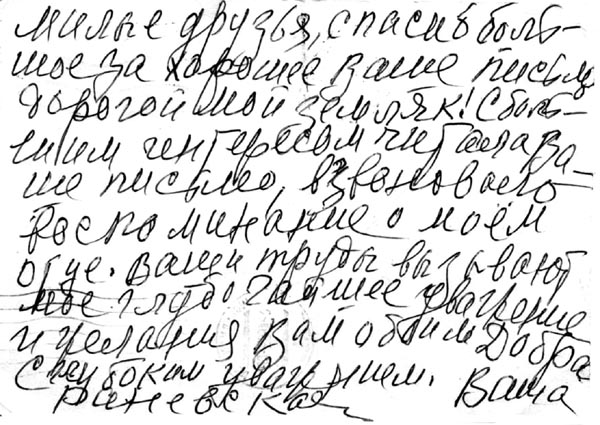 милые друзья, спасибо боль-
шое за хорошее ваше письмо
дорогой мой земляк! С боль-
шим интересом читала Ва-
ше письмо, взволновало
воспоминание о моём
отце. Ваши труды вызывают
мое глубочайшее уважение
и желания Вам обоим Добра
с глубоким уважением. Ваша
Раневская